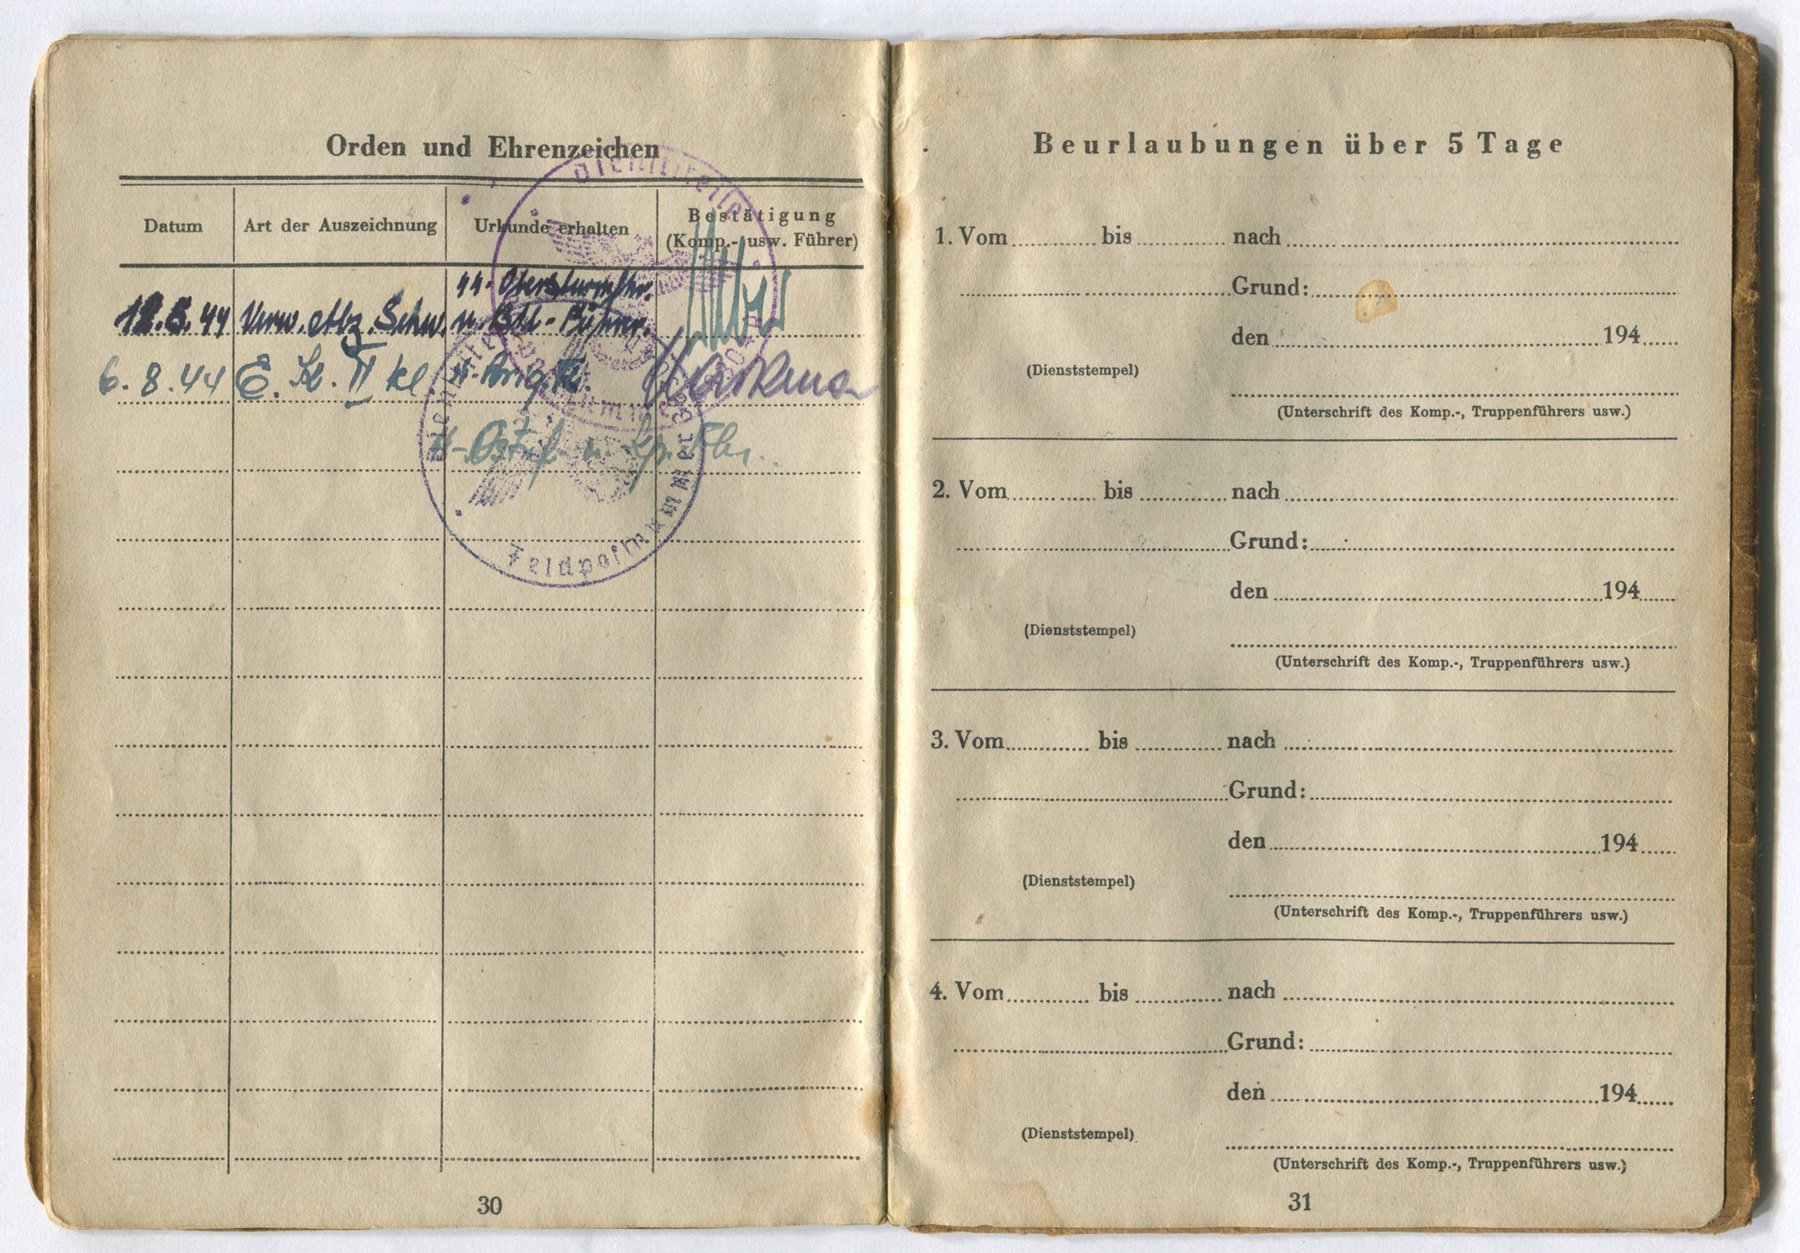 Orden und Ehrenzeichen
Datum Art der Auszeichnung Urkunde erhalten Bestätigung (Komp.- usw. Führer)
Dienststelle
44 Verw. Abz. Schw. u. Btl-Führer.
6.8.44 E. K. II kl
Feldpostnummer
30
Beurlaubungen über 5 Tage
1. Vom bis nach
Grund:
den 194
(Dienststempel)
(Unterschrift des Komp.-, Truppenführers usw.)
2. Vom bis nach
Grund:
den 194
(Dienststempel)
(Unterschrift des Komp.-, Truppenführers usw.)
3. Vom bis nach
Grund:
den 194
(Dienststempel)
(Unterschrift des Komp.-, Truppenführers usw.)
4. Vom bis nach
Grund:
den 194
(Dienststempel)
(Unterschrift des Komp.-, Truppenführers usw.)
31